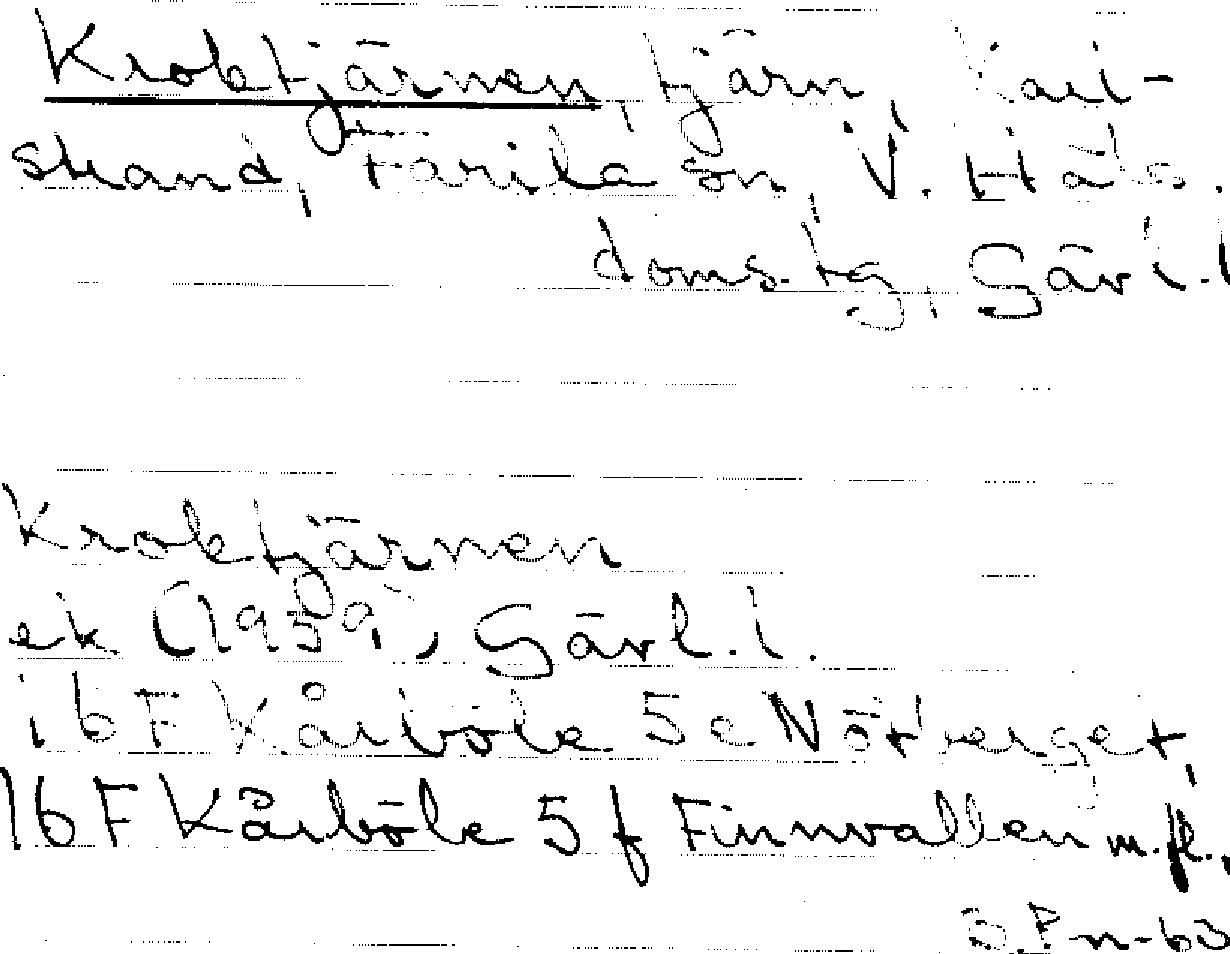 Kroktjärnen, tjärn, Karl-
strand, Färila sn, V. Häls.
doms.tg, Gävl.l
Kroktjärnen
ek. (1959), Gävl.l.
16F Kårböle 5e Nötberget,
16F Kårböle 5f Finnvallen m.fl.,